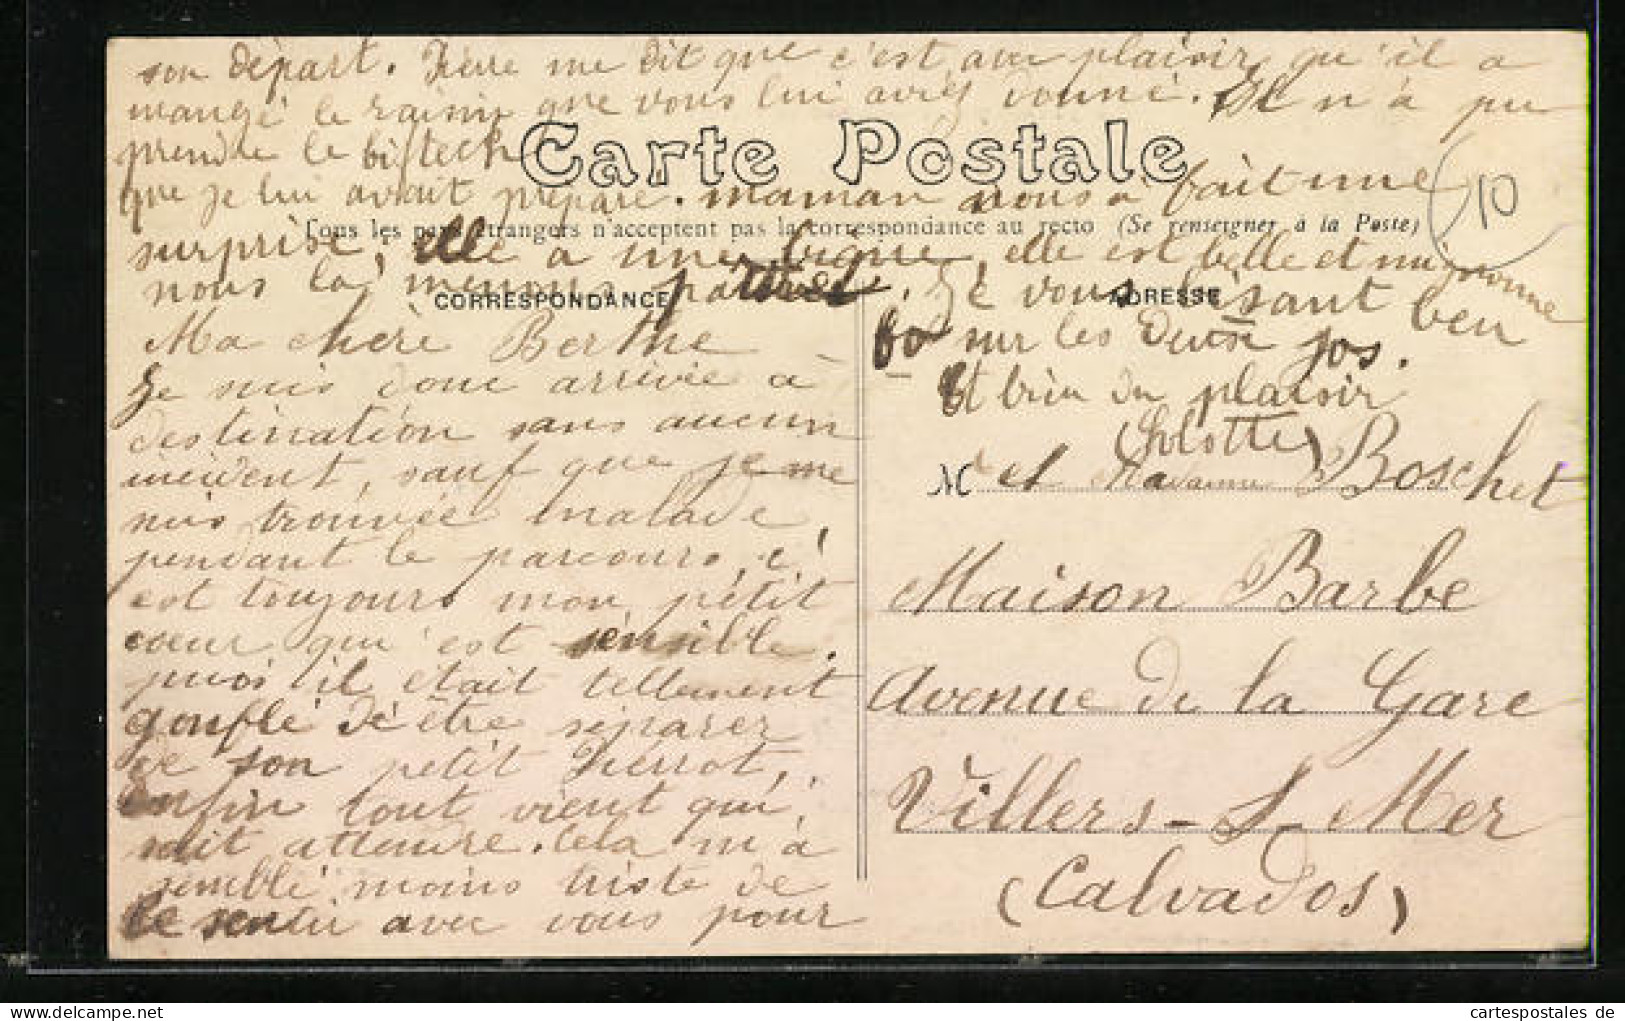 son départ. Pierre me dit que c'est avec plaisir qu'il a
mangé le raisin que vous lui aviez donné. Il n'a pu
prendre le bifteck
Carte Postale
que je lui avait préparé. maman nous a fait une
10
Tous les pays étrangers n'acceptent pas la correspondance au recto (Se renseigner à la Poste)
surprise, elle a une bigne, elle est belle et mignonne
nous la menons
CORRESPONDANCE
ADRESSE
Je vous disant beu
bo sur les deux jos.
Et bien du plaisir
(Lolotte)
Ma chère Berthe
Je suis donc arrivée à
destination sans aucun
incident, sauf que je me
suis trouvée malade,
pendant le parcours, c'
est toujours mon pétit
coeur qui est sensible.
puis il était tellement
gonflé d'être séparer
de son petit Pierrot,
enfin tout vient qui,
sait attendre. Cela m'a
semblé moins triste de
le sentir avec vous pour
M et Madame Boschet
Maison Barbe
Avenue de la Gare
Villers-S-Mer
(Calvados)
cartespostales de